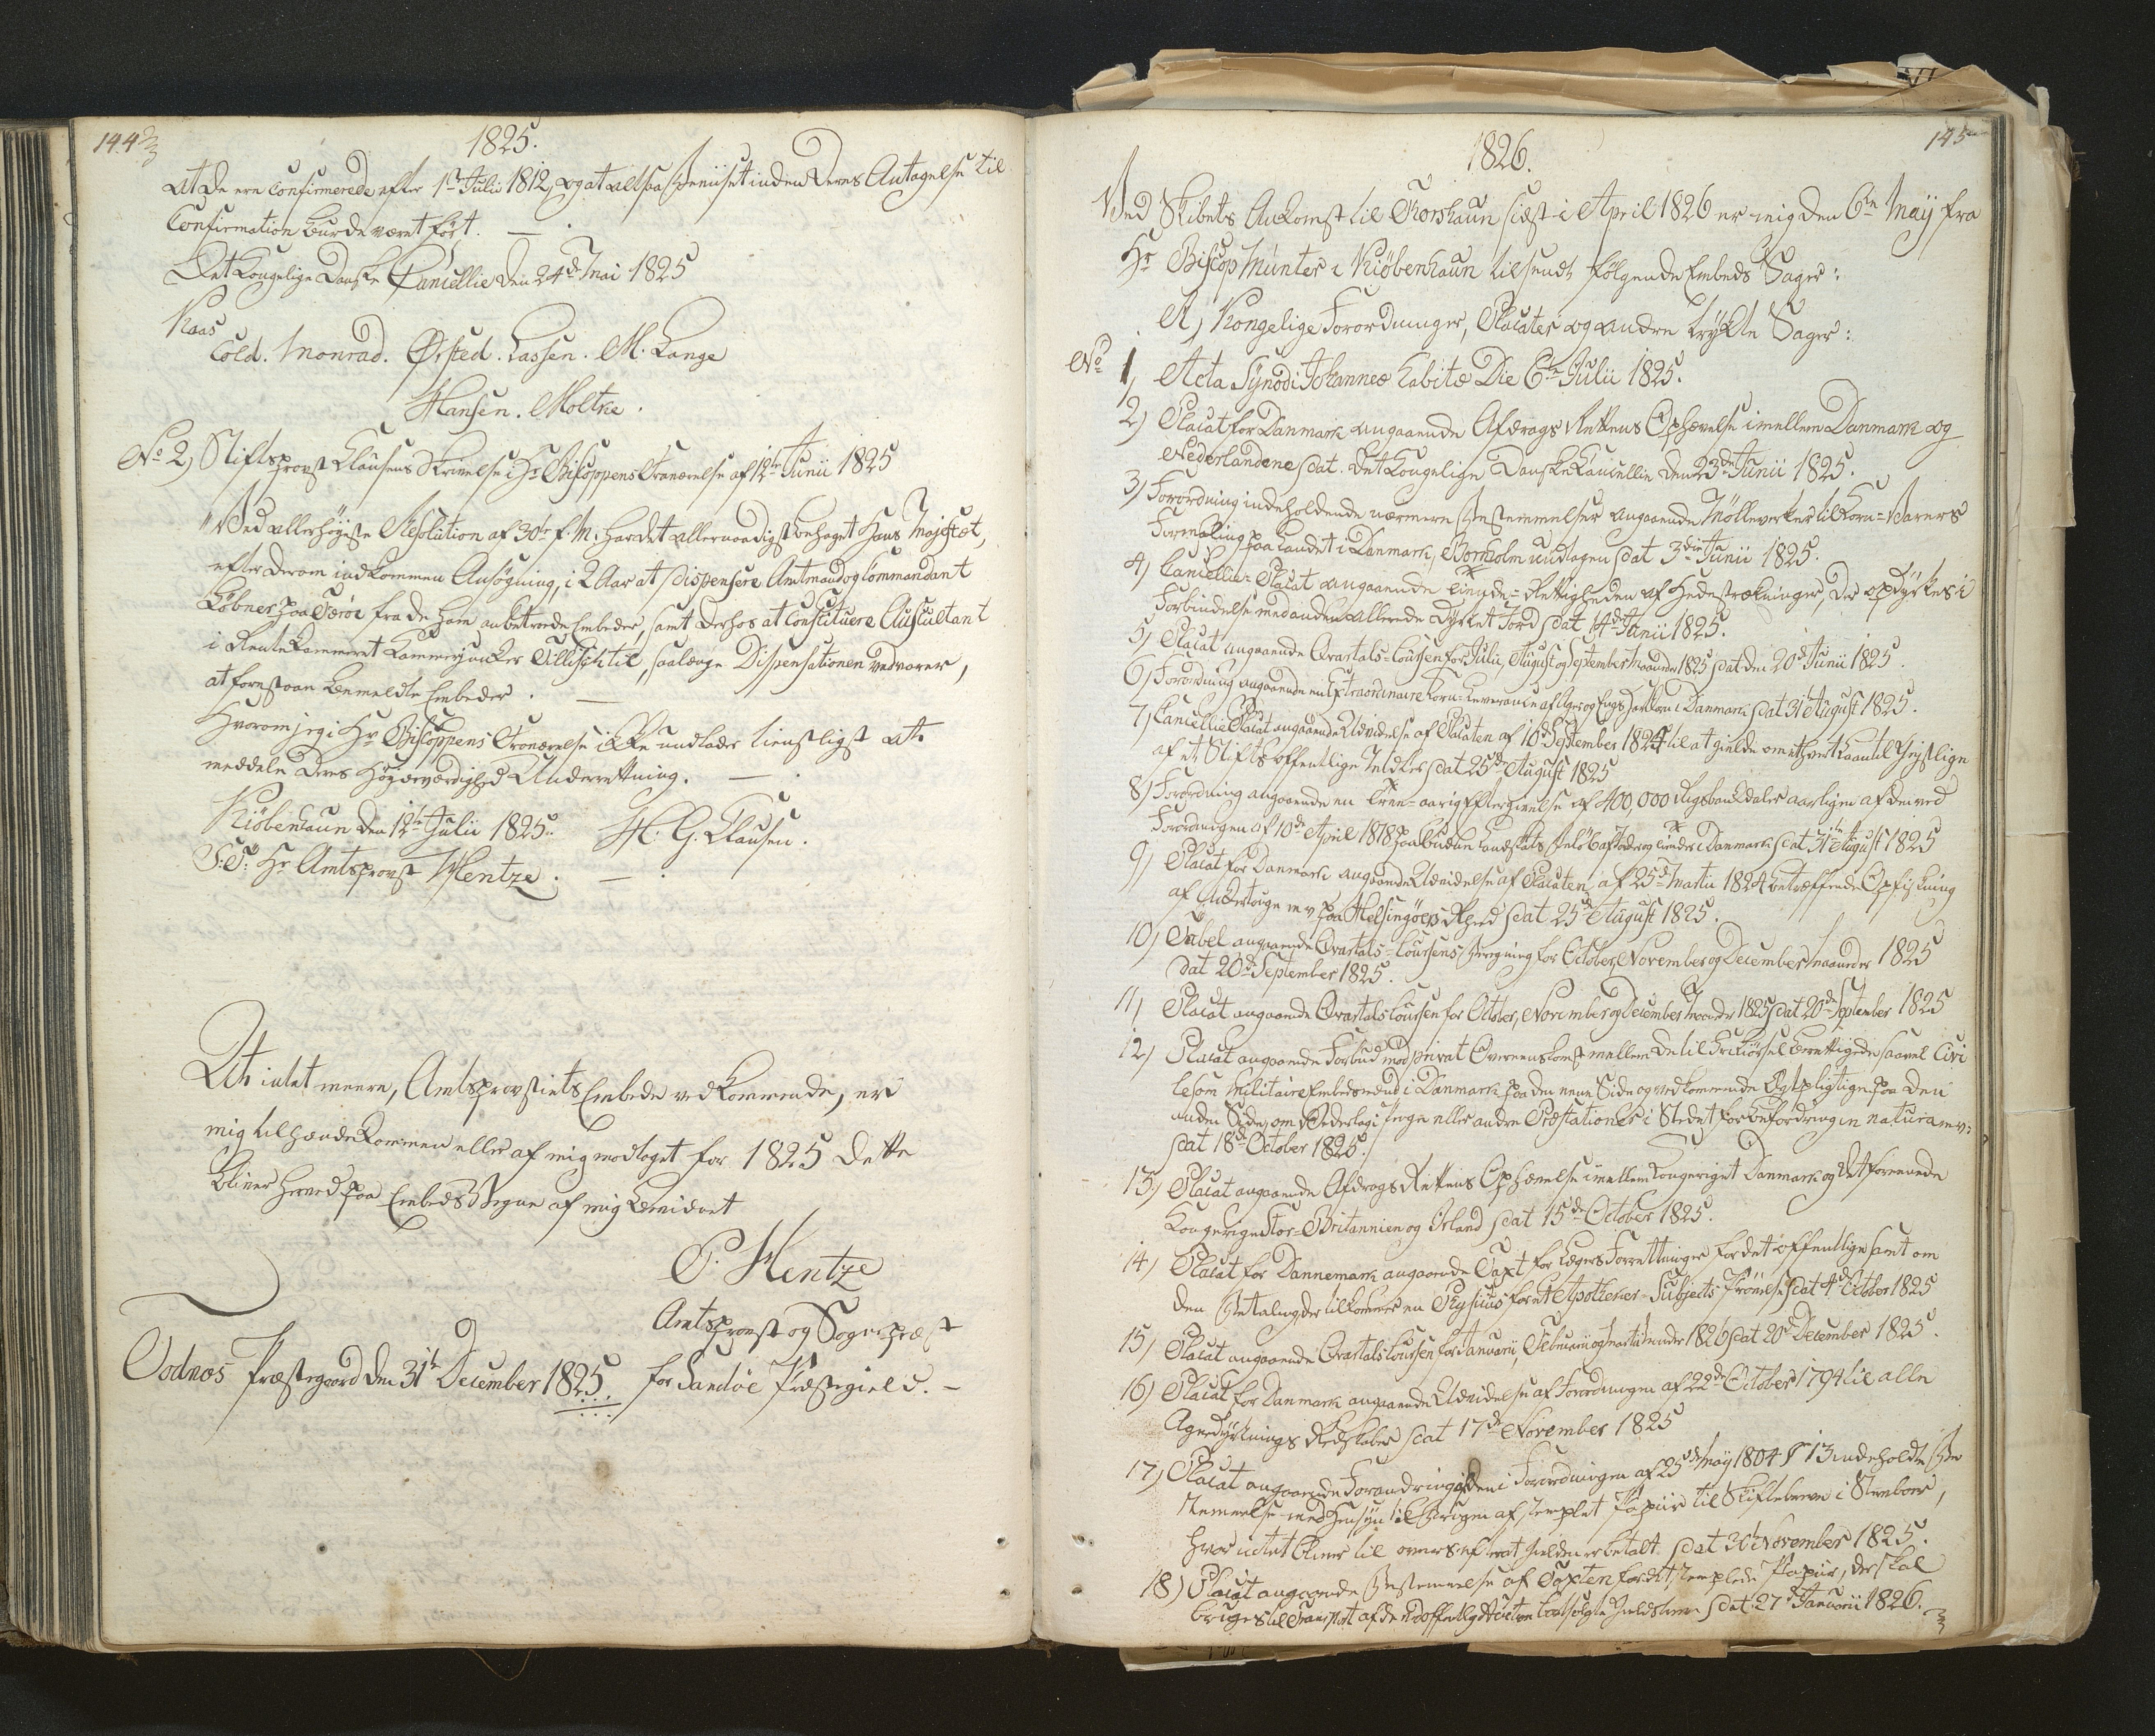 144
1825.
at de ere confirmerede efter 1ste Julii 1812, og at altsaa Beviset inden deres Antagelse til
Confirmation burde været ført. —
Det Kongelige Danske Cancellie den 24de Mai 1825
Kaas
Cold. Monrad. Ørsted. Lassen. M. Lange
Hansen. Moltke.
No 2) Stiftsprovst Clausens Skrivelse i Hr Biskoppens Fraværelse af 12te Junii 1825
"Ved allerhöyeste Resolution af 30te f. M. har det allernaadigst behaget Hans Majestæt,
efter derom indkommen Ansøgning, i 2 Aar at dispensere Amtmand og Commandant
Løbner paa Færöe fra de ham anbetroede Embeder, samt derhos at constituere Auscultant
i Rentekammeret Kammerjunker Tillisch til, saalænge Dispensationen vedvarer,
at forestaae bemeldte Embeder. —
Hvorom jeg i Hr Biskoppens Fraværelse ikke undlader tienstligst at
meddele Deres Höyærværdighed Underretning. —
Kiöbenhavn den 12te Julii 1825. H. G. Clausen.
S. T. Hr Amtsprovst Hentze. —
At intet meere, Amtsprovstiets Embede vedkommende, er
mig tilhændekommen eller af mig modtaget for 1825 dette
bliver herved paa Embeds Vegne af mig bevidnet
P. Hentze
Amtsprovst og Sognepræst
Todnæs Præstegaard den 31te December 1825. for Sandöe Præstegield. —
145
1826.
Ved Skibets Ankomst til Thorshavn sidst i April 1826 er mig den 6te Maij fra
Hr Biscop Münter i Kiöbenhavn tilsendt følgende Embeds Sager:
A) Kongelige Forordninger, Placater og andre trykte Sager:
No 1, Acta Synodi Johanneæ habitæ Die 6te Julii 1825.
2) Placat for Danmark angaaende Afdrags Rettens Ophævelse imellem Danmark og
Nederlandene dat. det Kongelige Danske Cancellie den 23de Junii 1825.
3) Forordning indeholdende nærmere Bestemmelser angaaende Mølleverker til Korn-Varers
Formaling paa Landet i Danmark, Bornholm undtagen dat 3die Junii 1825.
4) Cancellie-Placat angaaende Tiende-Rettigheden af Hedestrækninger, der opdyrkes i
Forbindelse med anden allerede dyrket Jord dat 14de Junii 1825.
5) Placat angaaende Qvartals-Coursen for Julii, August og September Maaneder 1825 dat den 20de Junii 1825.
6) Forordning angaaende en Extraordinaire Korn-Leverance af Ager og Engs Hartkorn i Danmark dat 31 August 1825.
7) Cancellie Placat angaaende Udvidelse af Placaten af 10de September 1824 til at gielde om ethvert Qvantil Geistlige
af et Stifts offentlige Midler dat 25de August 1825
8) Forordning angaaende en Tree-aarig Eftergivelse af 400,000 Rigsbankdaler aarligen af den ved
Forordningen af 10de April 1818 paabudne Landskats Beløb af Jorder og Tiender i Danmark dat 31te August 1825
9) Placat for Danmark angaaende Udvidelse af Placaten af 25de Martii 1824 betræffende Opfiskning
af Ankertouge m v paa Helsingöers Rheed dat 25de August 1825.
10) Tabel angaaende Qvartals-Coursens Beregning for October, November og December Maaneder 1825
dat 20de September 1825.
11) Placat angaaende Qvartals Coursen for October, November og December Maaneder 1825 dat 20de September 1825
12) Placat angaaende Forbud mod privat Overeenskomst mellem de til Frikiørsel berettigede saavel Civi
le som Militaire Embedsmænd i Danmark paa den eene Side og vedkommende Ægtpligtige paa den
anden Side, om Vederlag i Penge eller andre Præstationer i Stedet for Befordring in natura m v:
dat 18de October 1825.
13) Placat angaaende Afdrags Rettens Ophævelse imellem Kongeriget Danmark og det forenede
Kongerige Stor-Britannien og Irland dat 15de October 1825.
14) Placat for Dannemark angaaende Taxt for Lægers Forretninger for det offentlige samt om
den Betaling der tilkommer en Physicus for et Apotheker-Subjects Prøvelse dat 4de October 1825
15) Placat angaaende Qvartals Coursen for Januarii, Februarii og Martii Maaneder 1826 dat 20de December 1825.
16) Placat for Danmark angaaende Udvidelse af Forordningen af 22de October 1794 til alle
Agerdyrknings Redskaber dat 17de November 1825
17) Placat angaaende Forandring i den i Forordningen af 25de May 1804 § 13 indeholdte Be
stemmelse med Hensyn til Brugen af stemplet Papiir til Skiftebreve i Stervboer,
hvor intet bliver til overs efter at Gielden er betalt. dat 30te November 1825.
18) Placat angaaende Bestemmelse af Taxten for det stemplede Papiir, der skal
bruges til Transport af de ved offentlig Auction bortsolgte Gieldsbreve dat. 27de Januarii 1826.